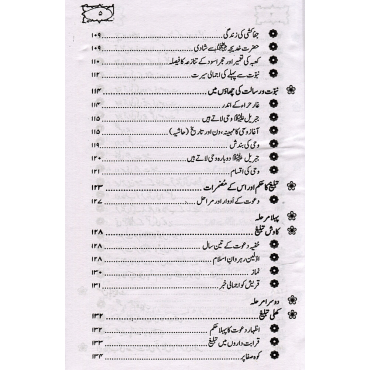 ۵
جفاکشی کی زندگی ۱۰۹
حضرت خدیجہؓ سے شادی ۱۰۹
کعبہ کی تعمیر اور حجر اسود کے تنازعہ کا فیصلہ ۱۱۰
نبوّت سے پہلے کی اجمالی سیرت ۱۱۲
نبوّت و رسالت کی چھاؤں میں ۱۱۴
غارِ حراء کے اندر ۱۱۴
جبریل وحی لاتے ہیں ۱۱۵
آغازِ وحی کا مہینہ، دن اور تاریخ (حاشیہ) ۱۱۵
وحی کی بندش ۱۱۹
جبریل دوبارہ وحی لاتے ہیں ۱۲۰
وحی کی اقسام ۱۲۱
تبلیغ کا حکم اور اس کے مضمرات ۱۲۳
دعوت کے ادوار و مراحل ۱۲۷
پہلا مرحلہ
کاوشِ تبلیغ ۱۲۸
خفیہ دعوت کے تین سال ۱۲۸
اوّلین رہروانِ اسلام ۱۲۸
نماز ۱۳۰
قریش کو اجمالی خبر ۱۳۱
دوسرا مرحلہ
کھلی تبلیغ ۱۳۲
اظہارِ دعوت کا پہلا حکم ۱۳۲
قرابت داروں میں تبلیغ ۱۳۳
کوہِ صفا پر ۱۳۴